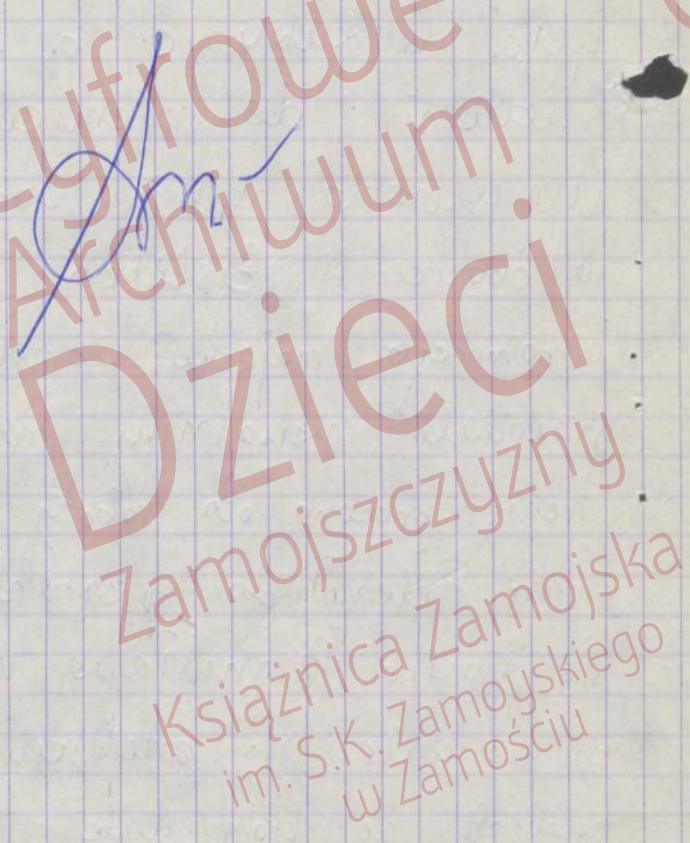 Cyfrowe
Archiwum
Dzieci
Zamojszczyzny
Książnica Zamojska
im. S.K. Zamoyskiego
w Zamościu